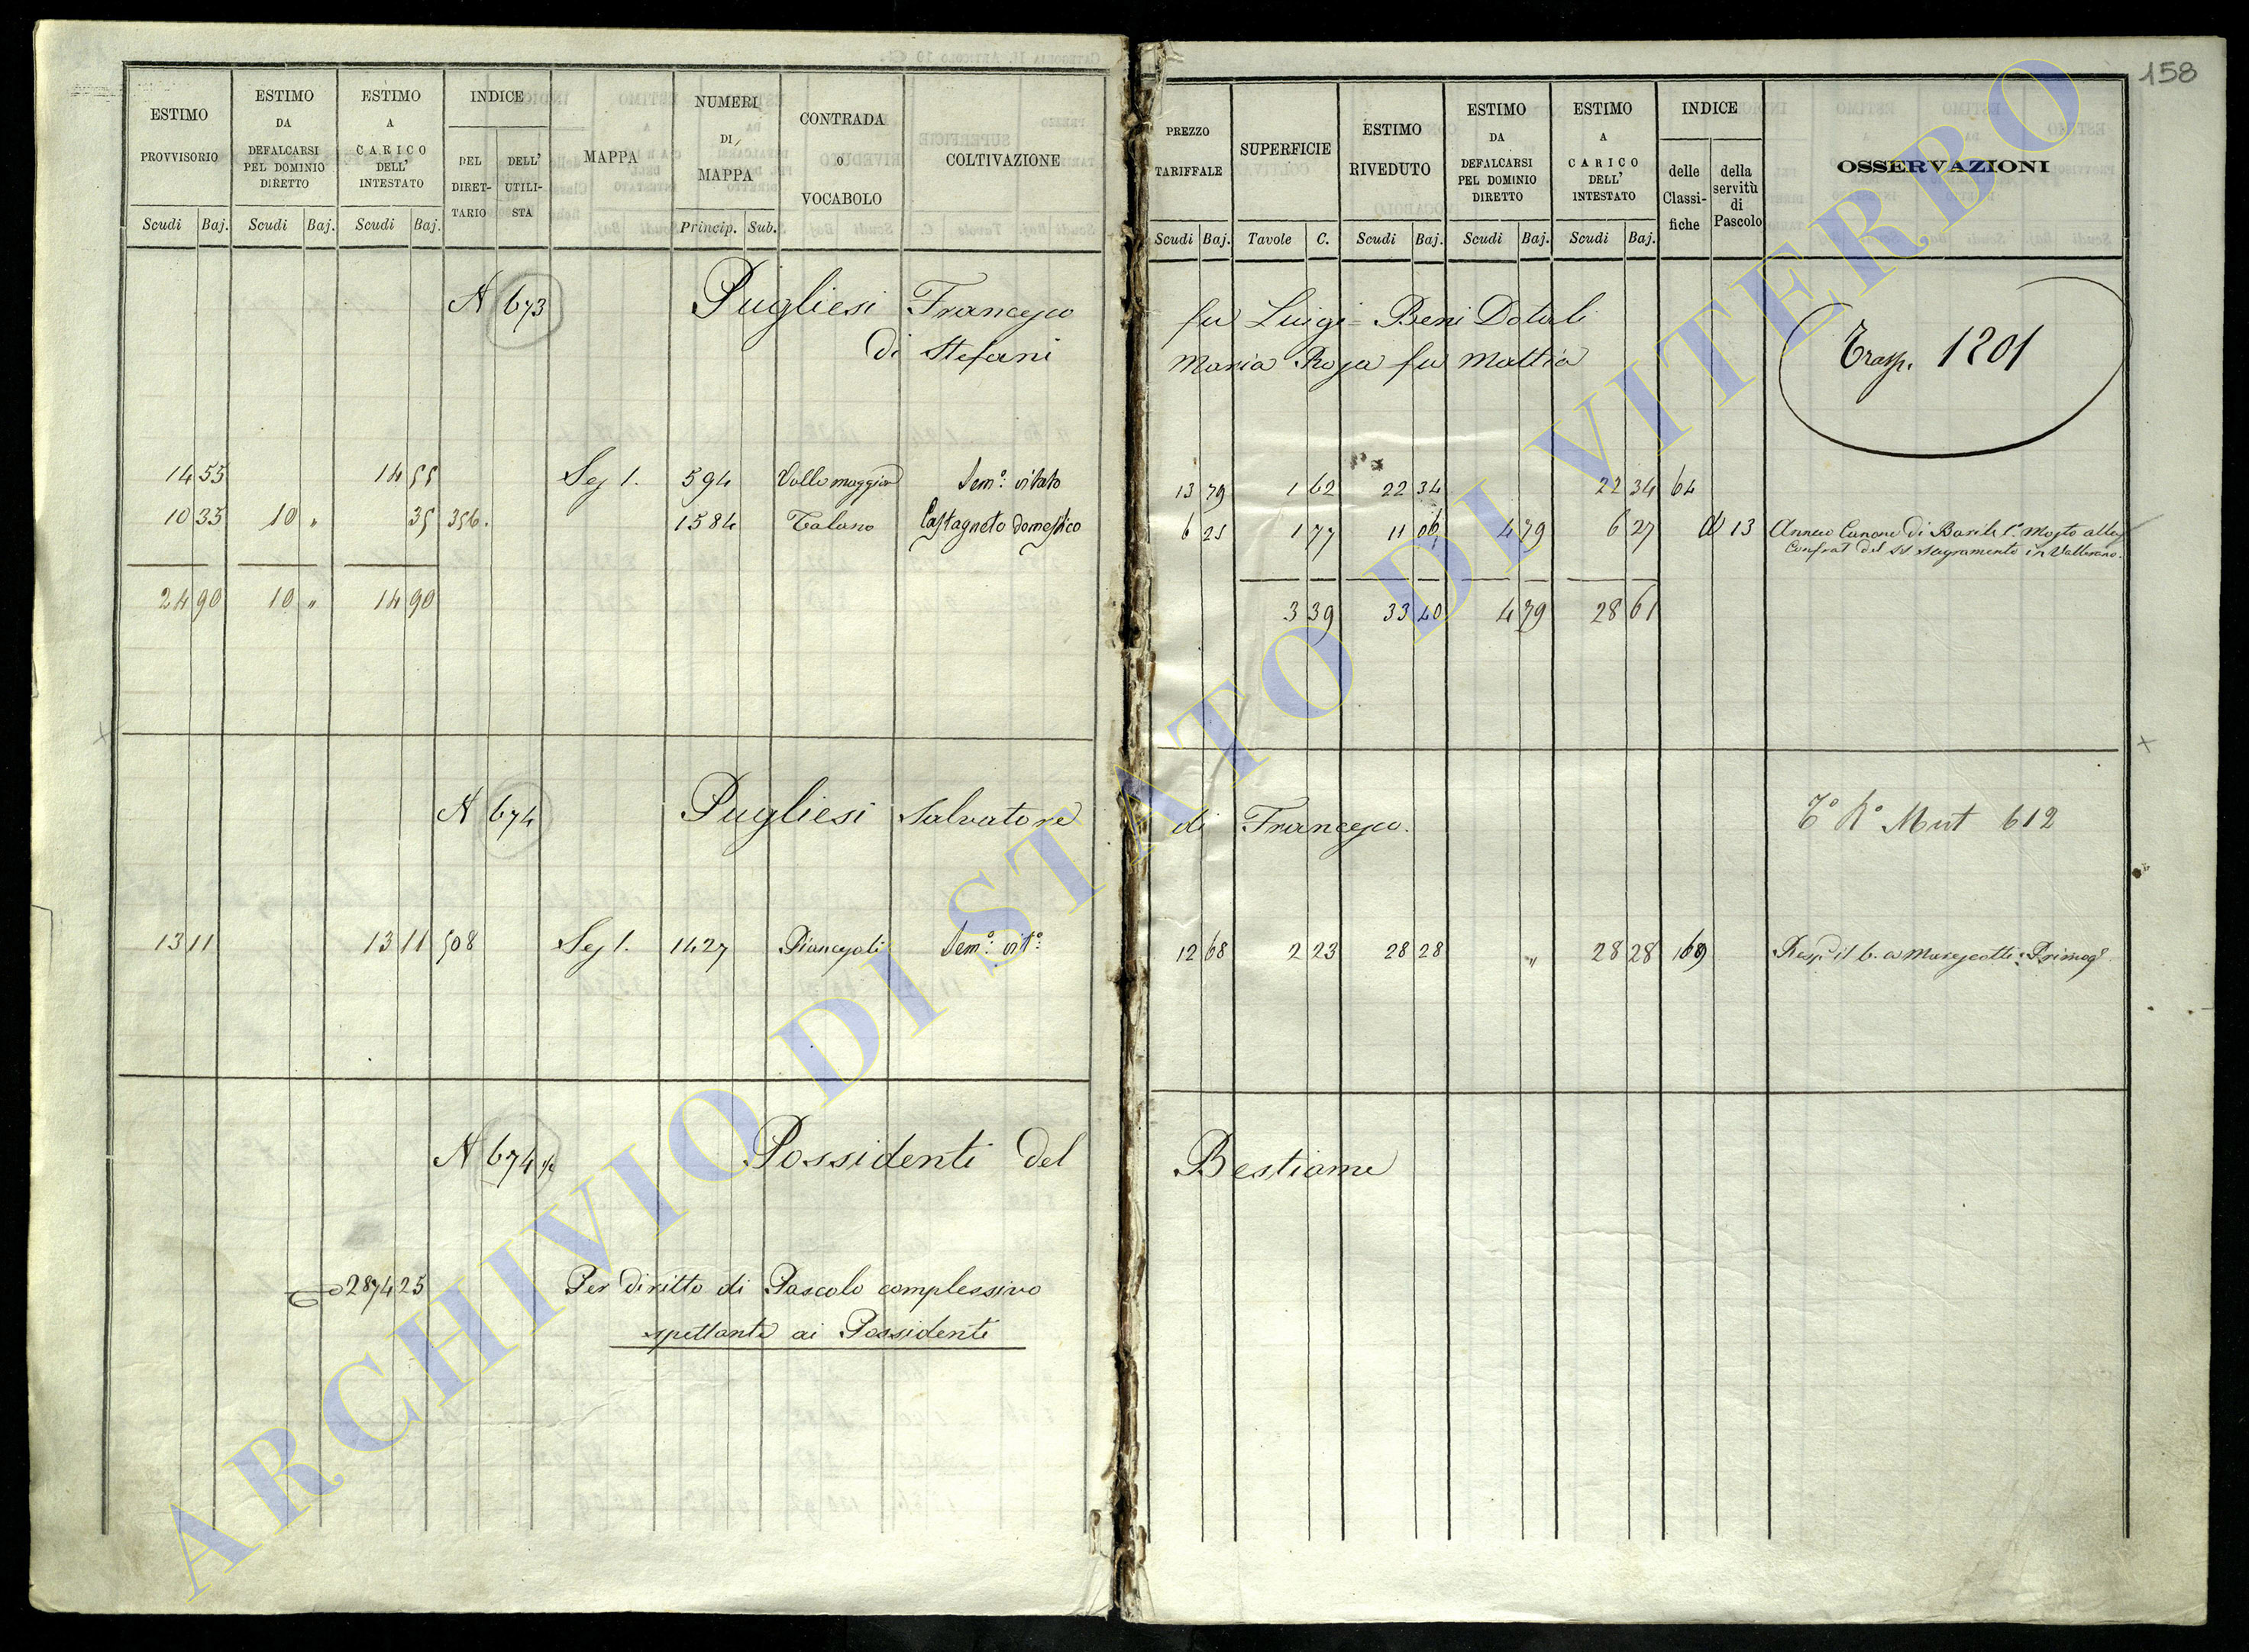 158
ESTIMO PROVVISORIO
ESTIMO DA DEFALCARSI PEL DOMINIO DIRETTO
ESTIMO A CARICO DELL' INTESTATO
INDICE
DEL DIRETTARIO
DELL' UTILISTA
MAPPA
NUMERI DI MAPPA
CONTRADA O VOCABOLO
COLTIVAZIONE
Scudi Baj. Scudi Baj. Scudi Baj. Princip. Sub.
PREZZO TARIFFALE
SUPERFICIE
ESTIMO RIVEDUTO
ESTIMO DA DEFALCARSI PEL DOMINIO DIRETTO
ESTIMO A CARICO DELL' INTESTATO
INDICE
delle Classifiche
della servitù di Pascolo
OSSERVAZIONI
Scudi Baj. Tavole C. Scudi Baj. Scudi Baj. Scudi Baj.
N 673 Pugliesi Francesco fu Luigi = Beni Dotali
di Stefani Maria Rosa fu Mattia
Trasp. 1201
14 55 14 55 Sez 1. 594 Vallemaggior Sem.º vitato 13 79 1 62 22 34 22 34 64
10 35 10 „ 35 356. 1584 Talano Castagneto domestico 6 25 1 77 11 06 4 79 6 27 d 13 Annuo Canone di Barile 1º Mosto alla
Confrat del SS Sagramento in Vallerano.
24 90 10 „ 14 90 3 39 33 40 4 79 28 61
N 674 Pugliesi Salvatore di Francesco.
Tº Nº Mut 612
13 11 13 11 508 Sez 1. 1427 Sem.º vit.º 12 68 2 23 28 28 „ 28 28 169 Risp il 6. a Marescotti Primogª
N 674½ Possidenti del Bestiame
2874 25 Per diritto di Pascolo complessivo
spettante ai Possidenti
ARCHIVIO DI STATO DI VITERBO